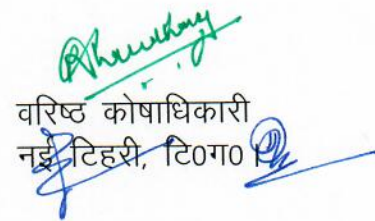 वरिष्ठ कोषाधिकारी
नई टिहरी, टि0ग0।